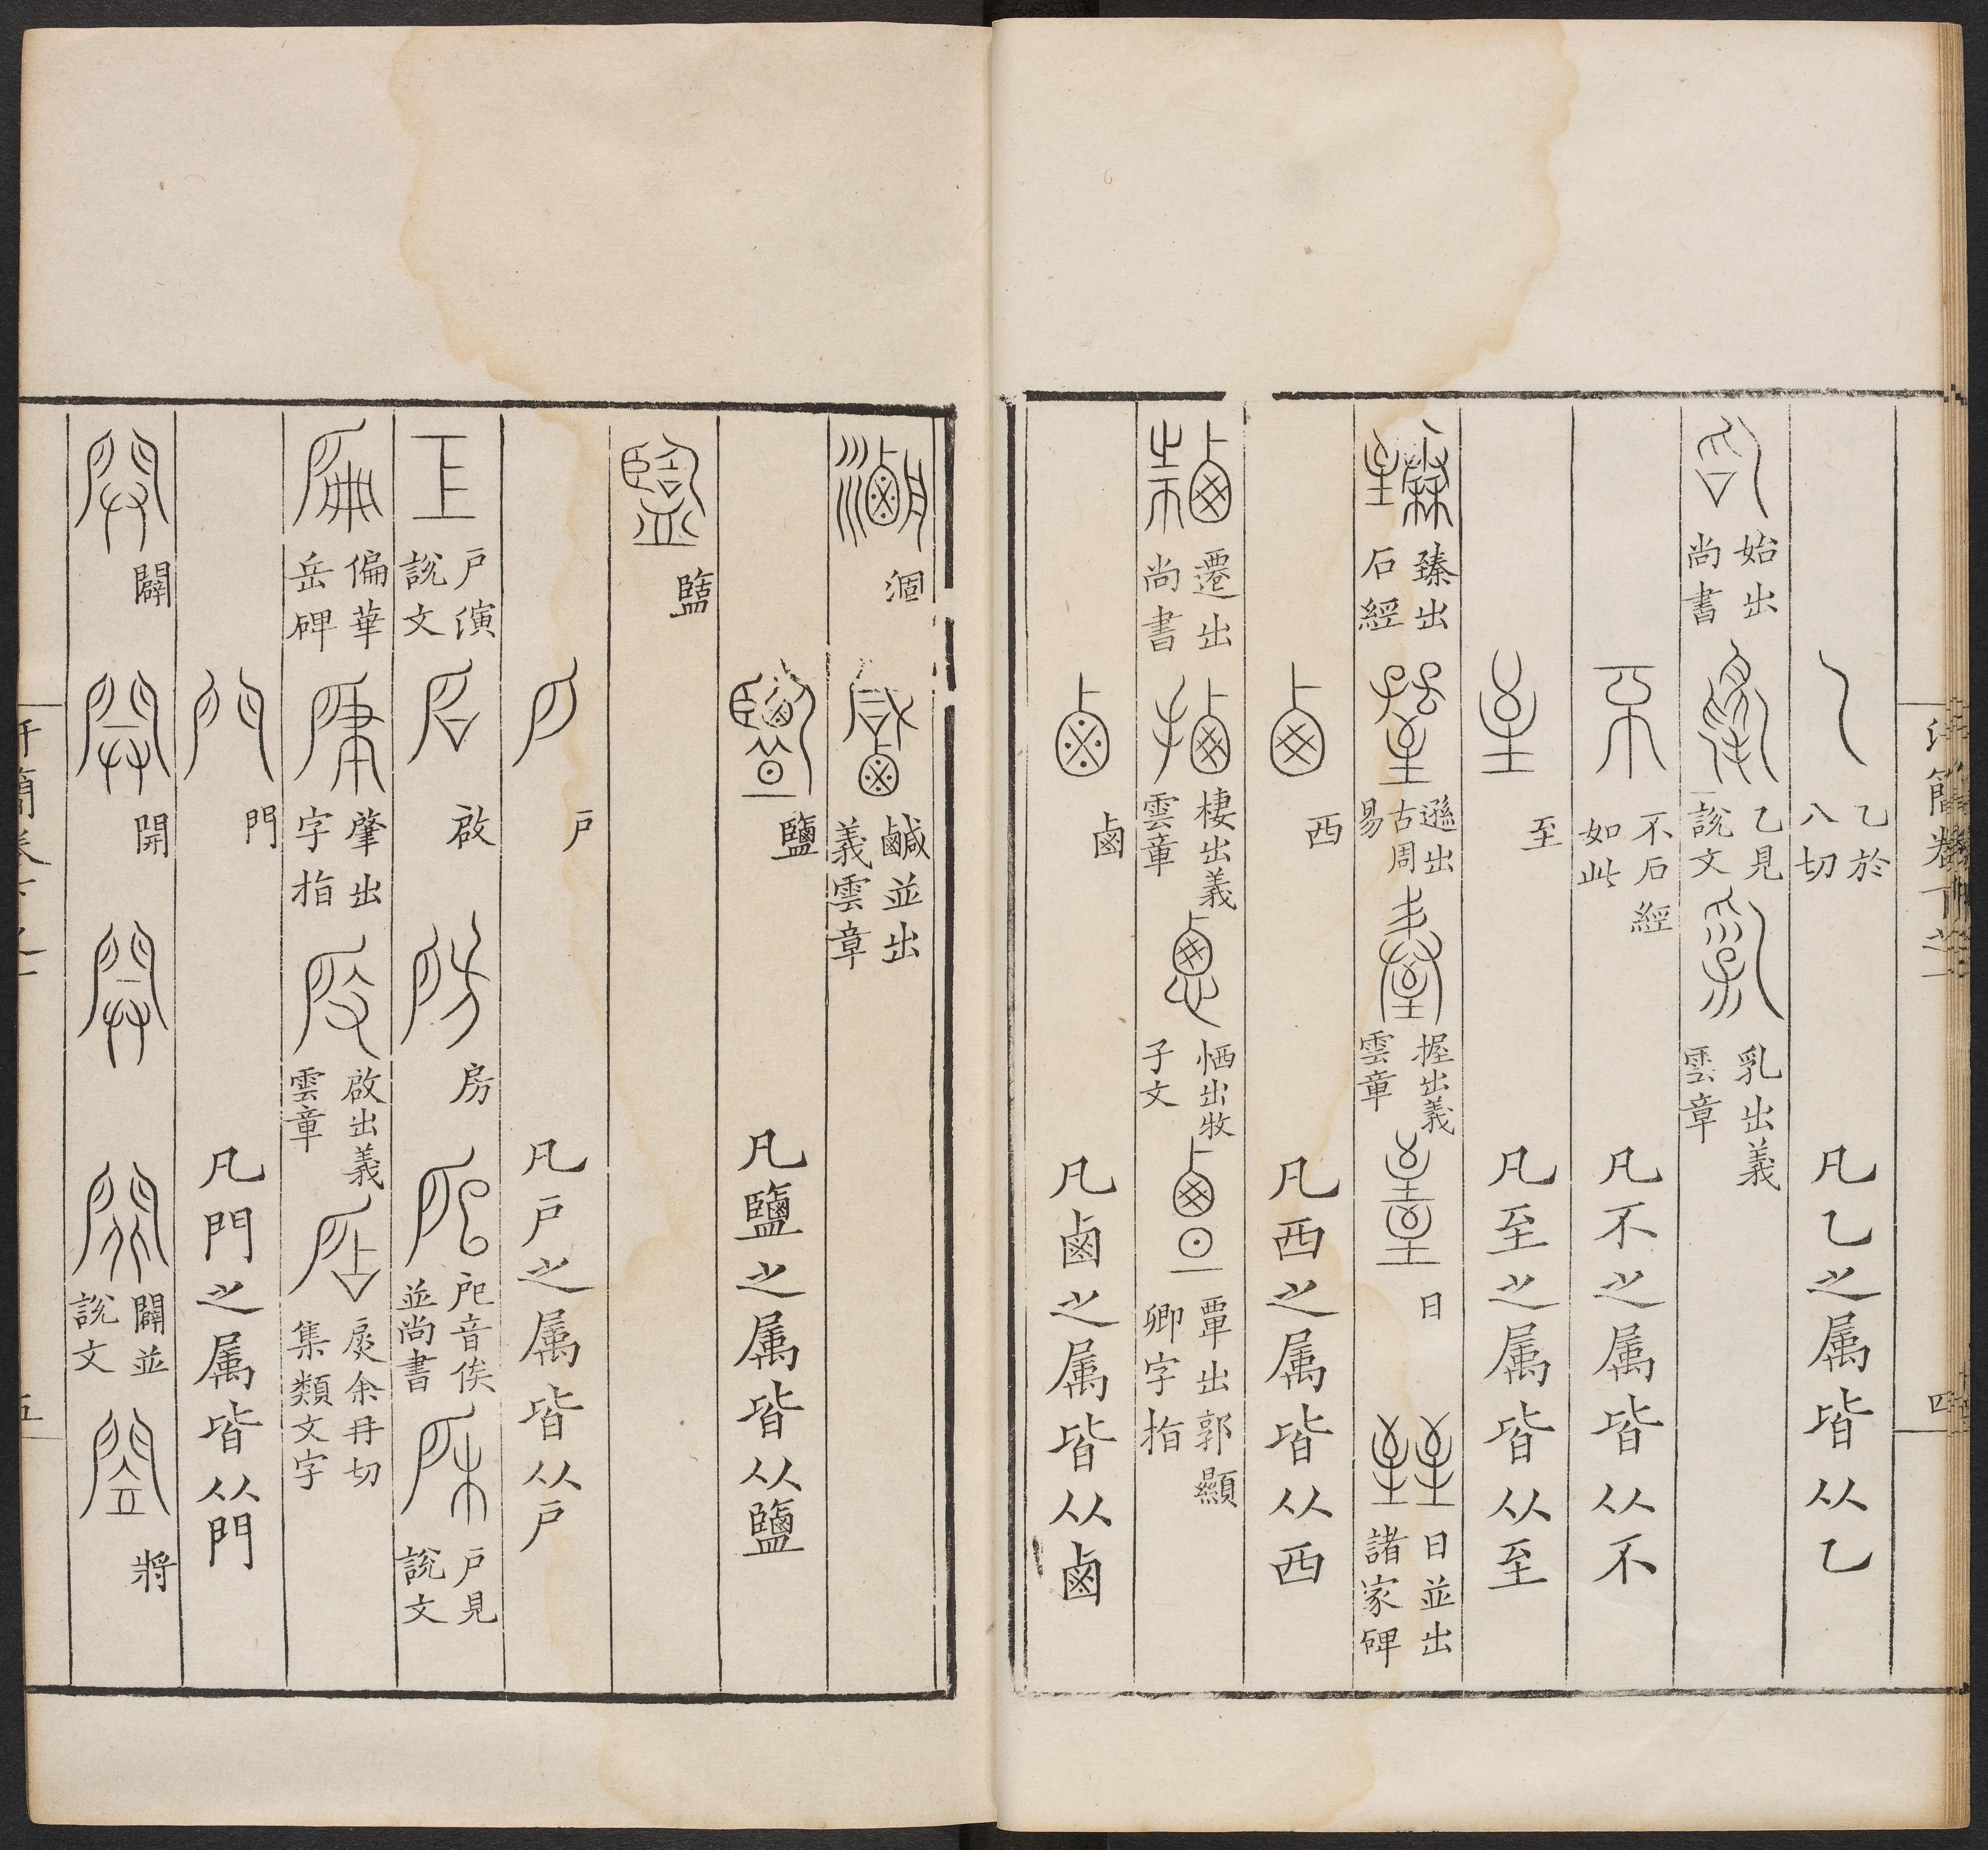 乙於八切 凡乙之属皆从乙
始出尚書 乙見說文 乳出義雲章
不石經如此 凡不之属皆从不
至 凡至之属皆从至
臻出石經 遜出古周易 握出義雲章 日 日並出諸家碑
西 凡西之属皆从西
遷出尚書 棲出義雲章 恓出牧子文 覃出郭顯卿字指
鹵 凡鹵之属皆从鹵
涸 鹹並出義雲章
鹽 凡鹽之属皆从鹽
盬
戶 凡戶之属皆从戶
戶演說文 啟 房 戺音俟並尚書 戶見說文
偏華岳碑 肇出字指 啟出義雲章 扊余冉切集類文字
門 凡門之属皆从門
闢 開 闢並說文 將
汗簡卷下之一 四
汗簡卷下之一 五